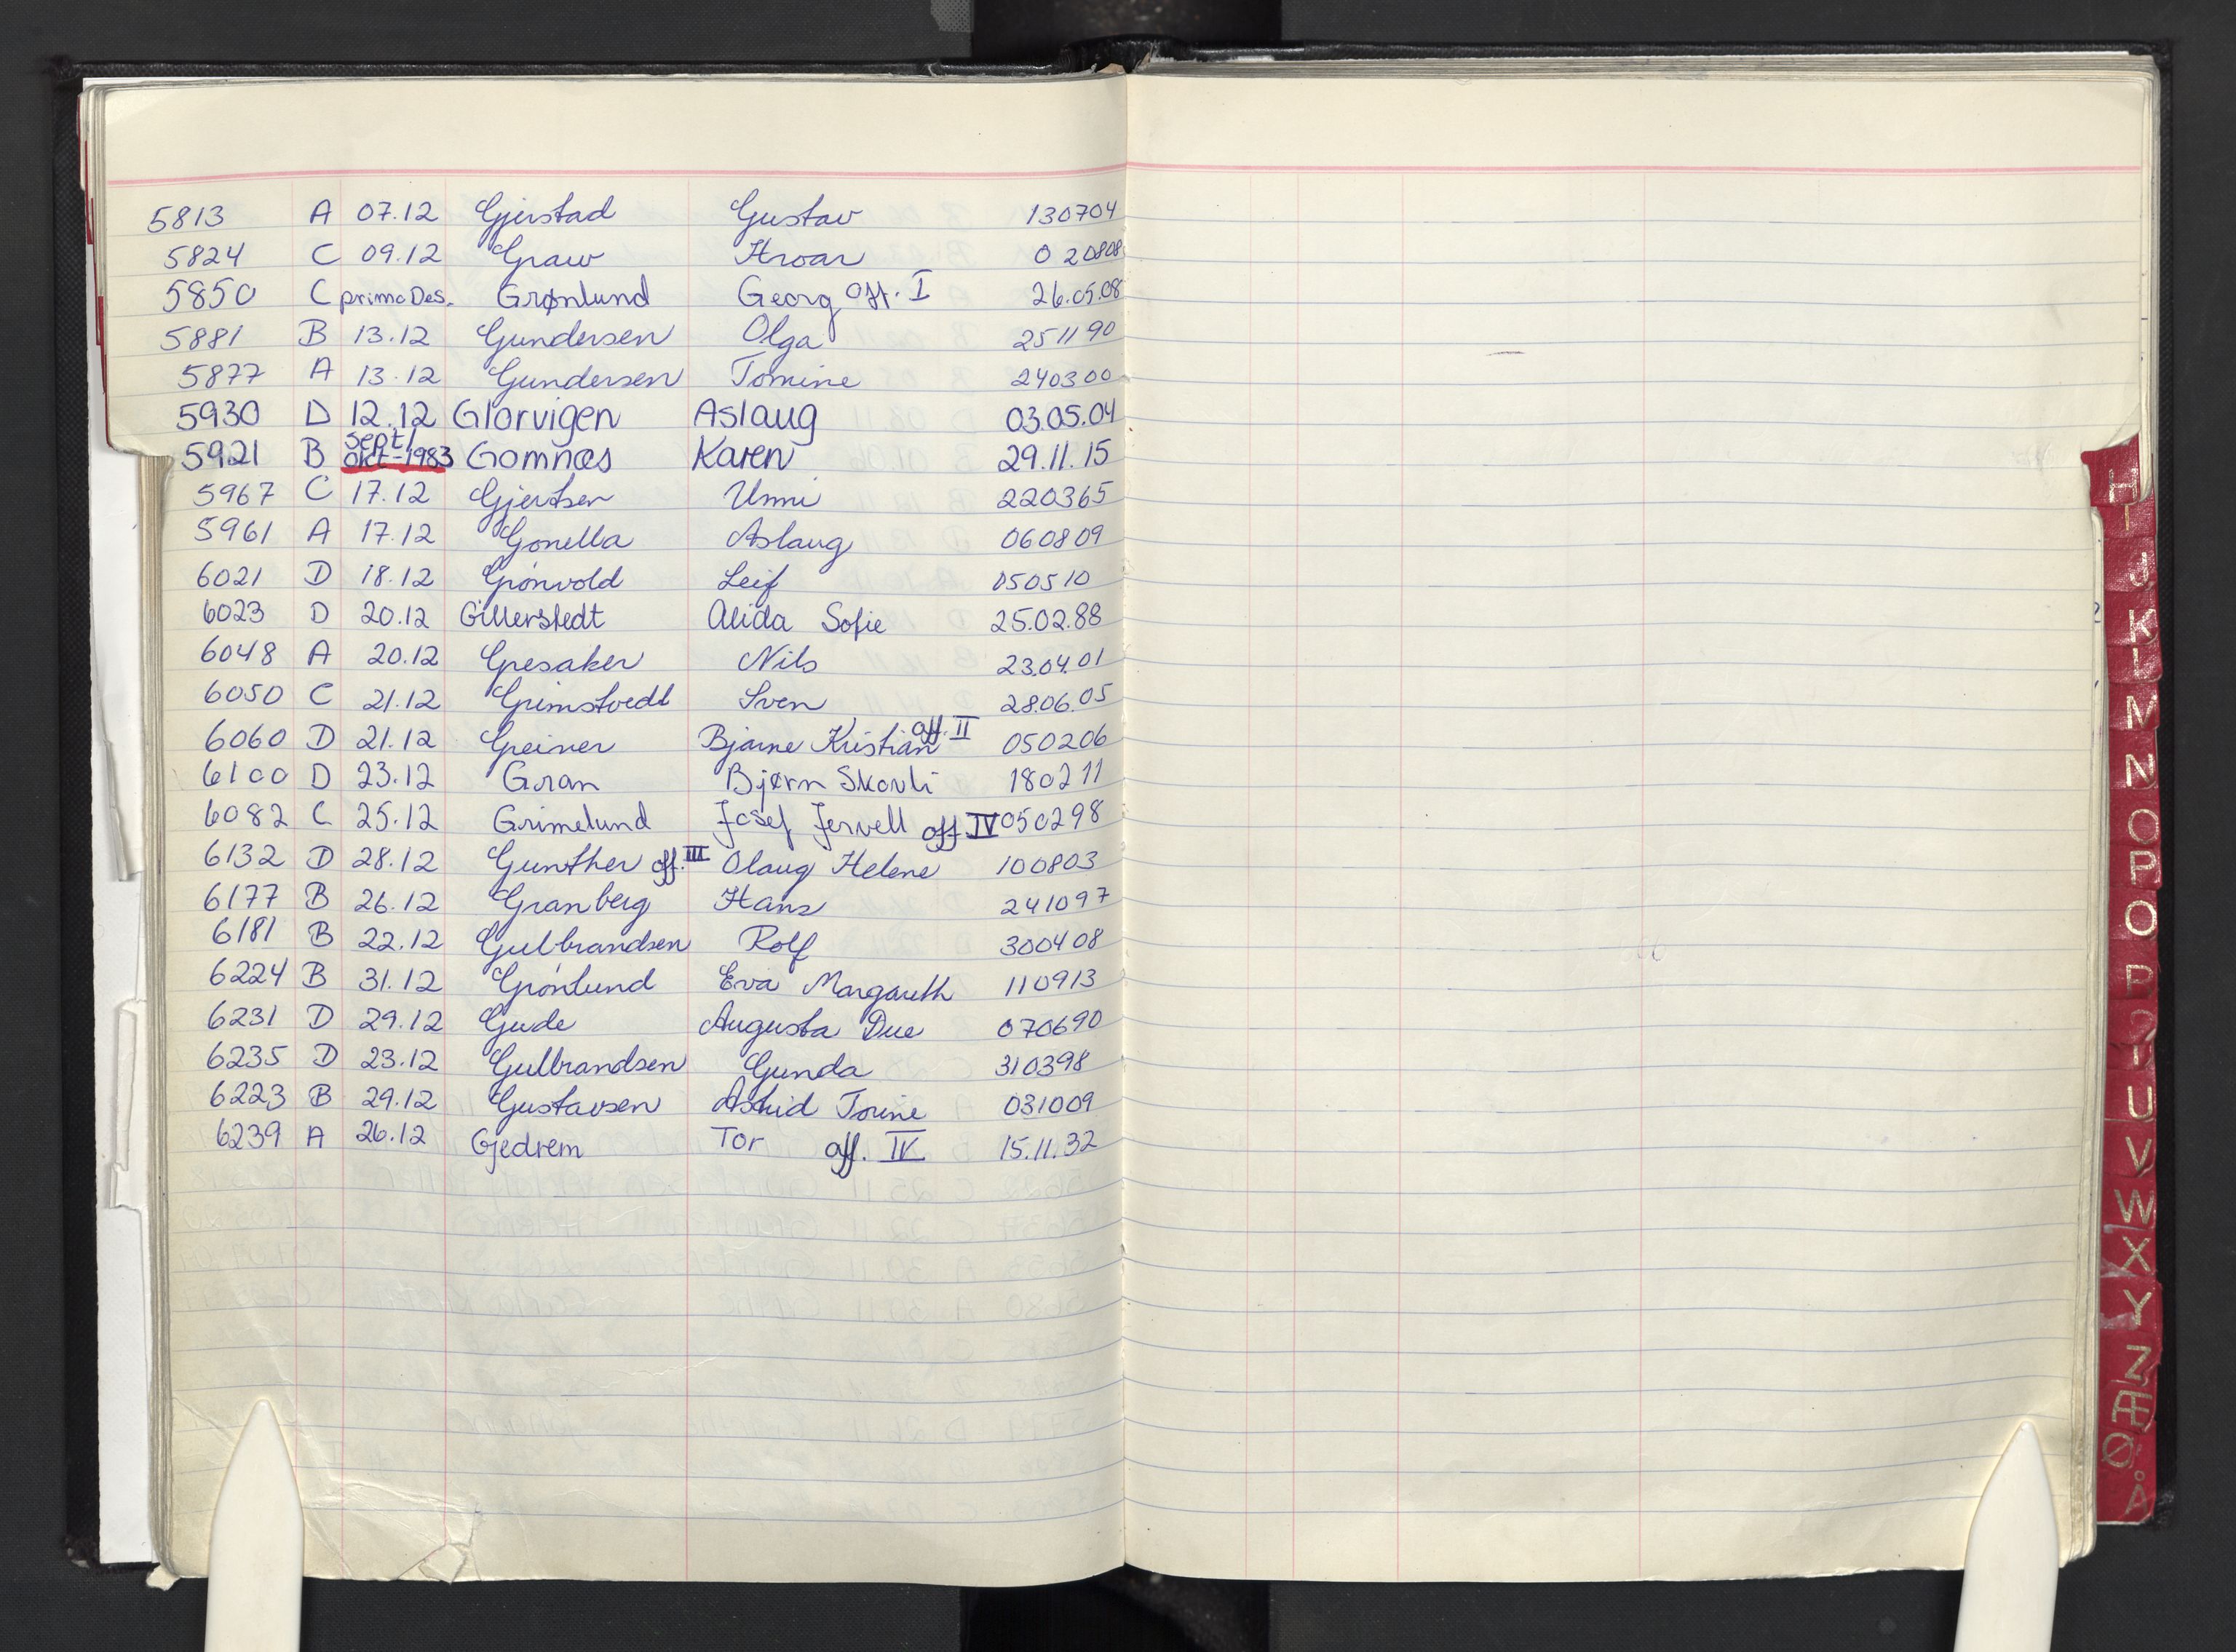 5813 A 07.12 Gjerstad Gustav 130704
5824 C 09.12 Graw Hroar 020808
5850 C primo Des. Grønlund Georg off. I 26.05.08
5881 B 13.12 Gundersen Olga 251190
5877 A 13.12 Gundersen Tomine 240300
5930 D 12.12 Glorvigen Aslaug 03.05.04
5921 B sept/okt-1983 Gomnæs Karen 29.11.15
5967 C 17.12 Gjertsen Unni 220365
5961 A 17.12 Gonella Aslaug 060809
6021 D 18.12 Grønvold Leif 050510
6023 D 20.12 Gillerstedt Alida Sofie 25.02.88
6048 A 20.12 Gresaker Nils 23.04.01
6050 C 21.12 Grimstvedt Sven 28.06.05
6060 D 21.12 Greiner Bjarne Kristian off. II 050206
6100 D 23.12 Gran Bjørn Skavli 180211
6082 C 25.12 Grimelund Josef Jervell off. IV 050298
6132 D 28.12 Gunther off. III Olaug Helene 100803
6177 B 26.12 Granberg Hans 241097
6181 B 22.12 Gulbrandsen Rolf 300408
6224 B 31.12 Grønlund Eva Margareth 110913
6231 D 29.12 Gude Augusta Due 070690
6235 D 23.12 Gulbrandsen Gunda 310398
6223 B 29.12 Gustavsen Astrid Torine 031009
6239 A 26.12 Gjedrem Tor off. IV 15.11.32
H
I
J
K
L
M
N
O
P
Q
R
U
V
W
X
Y
Z
Æ
Ø
Å